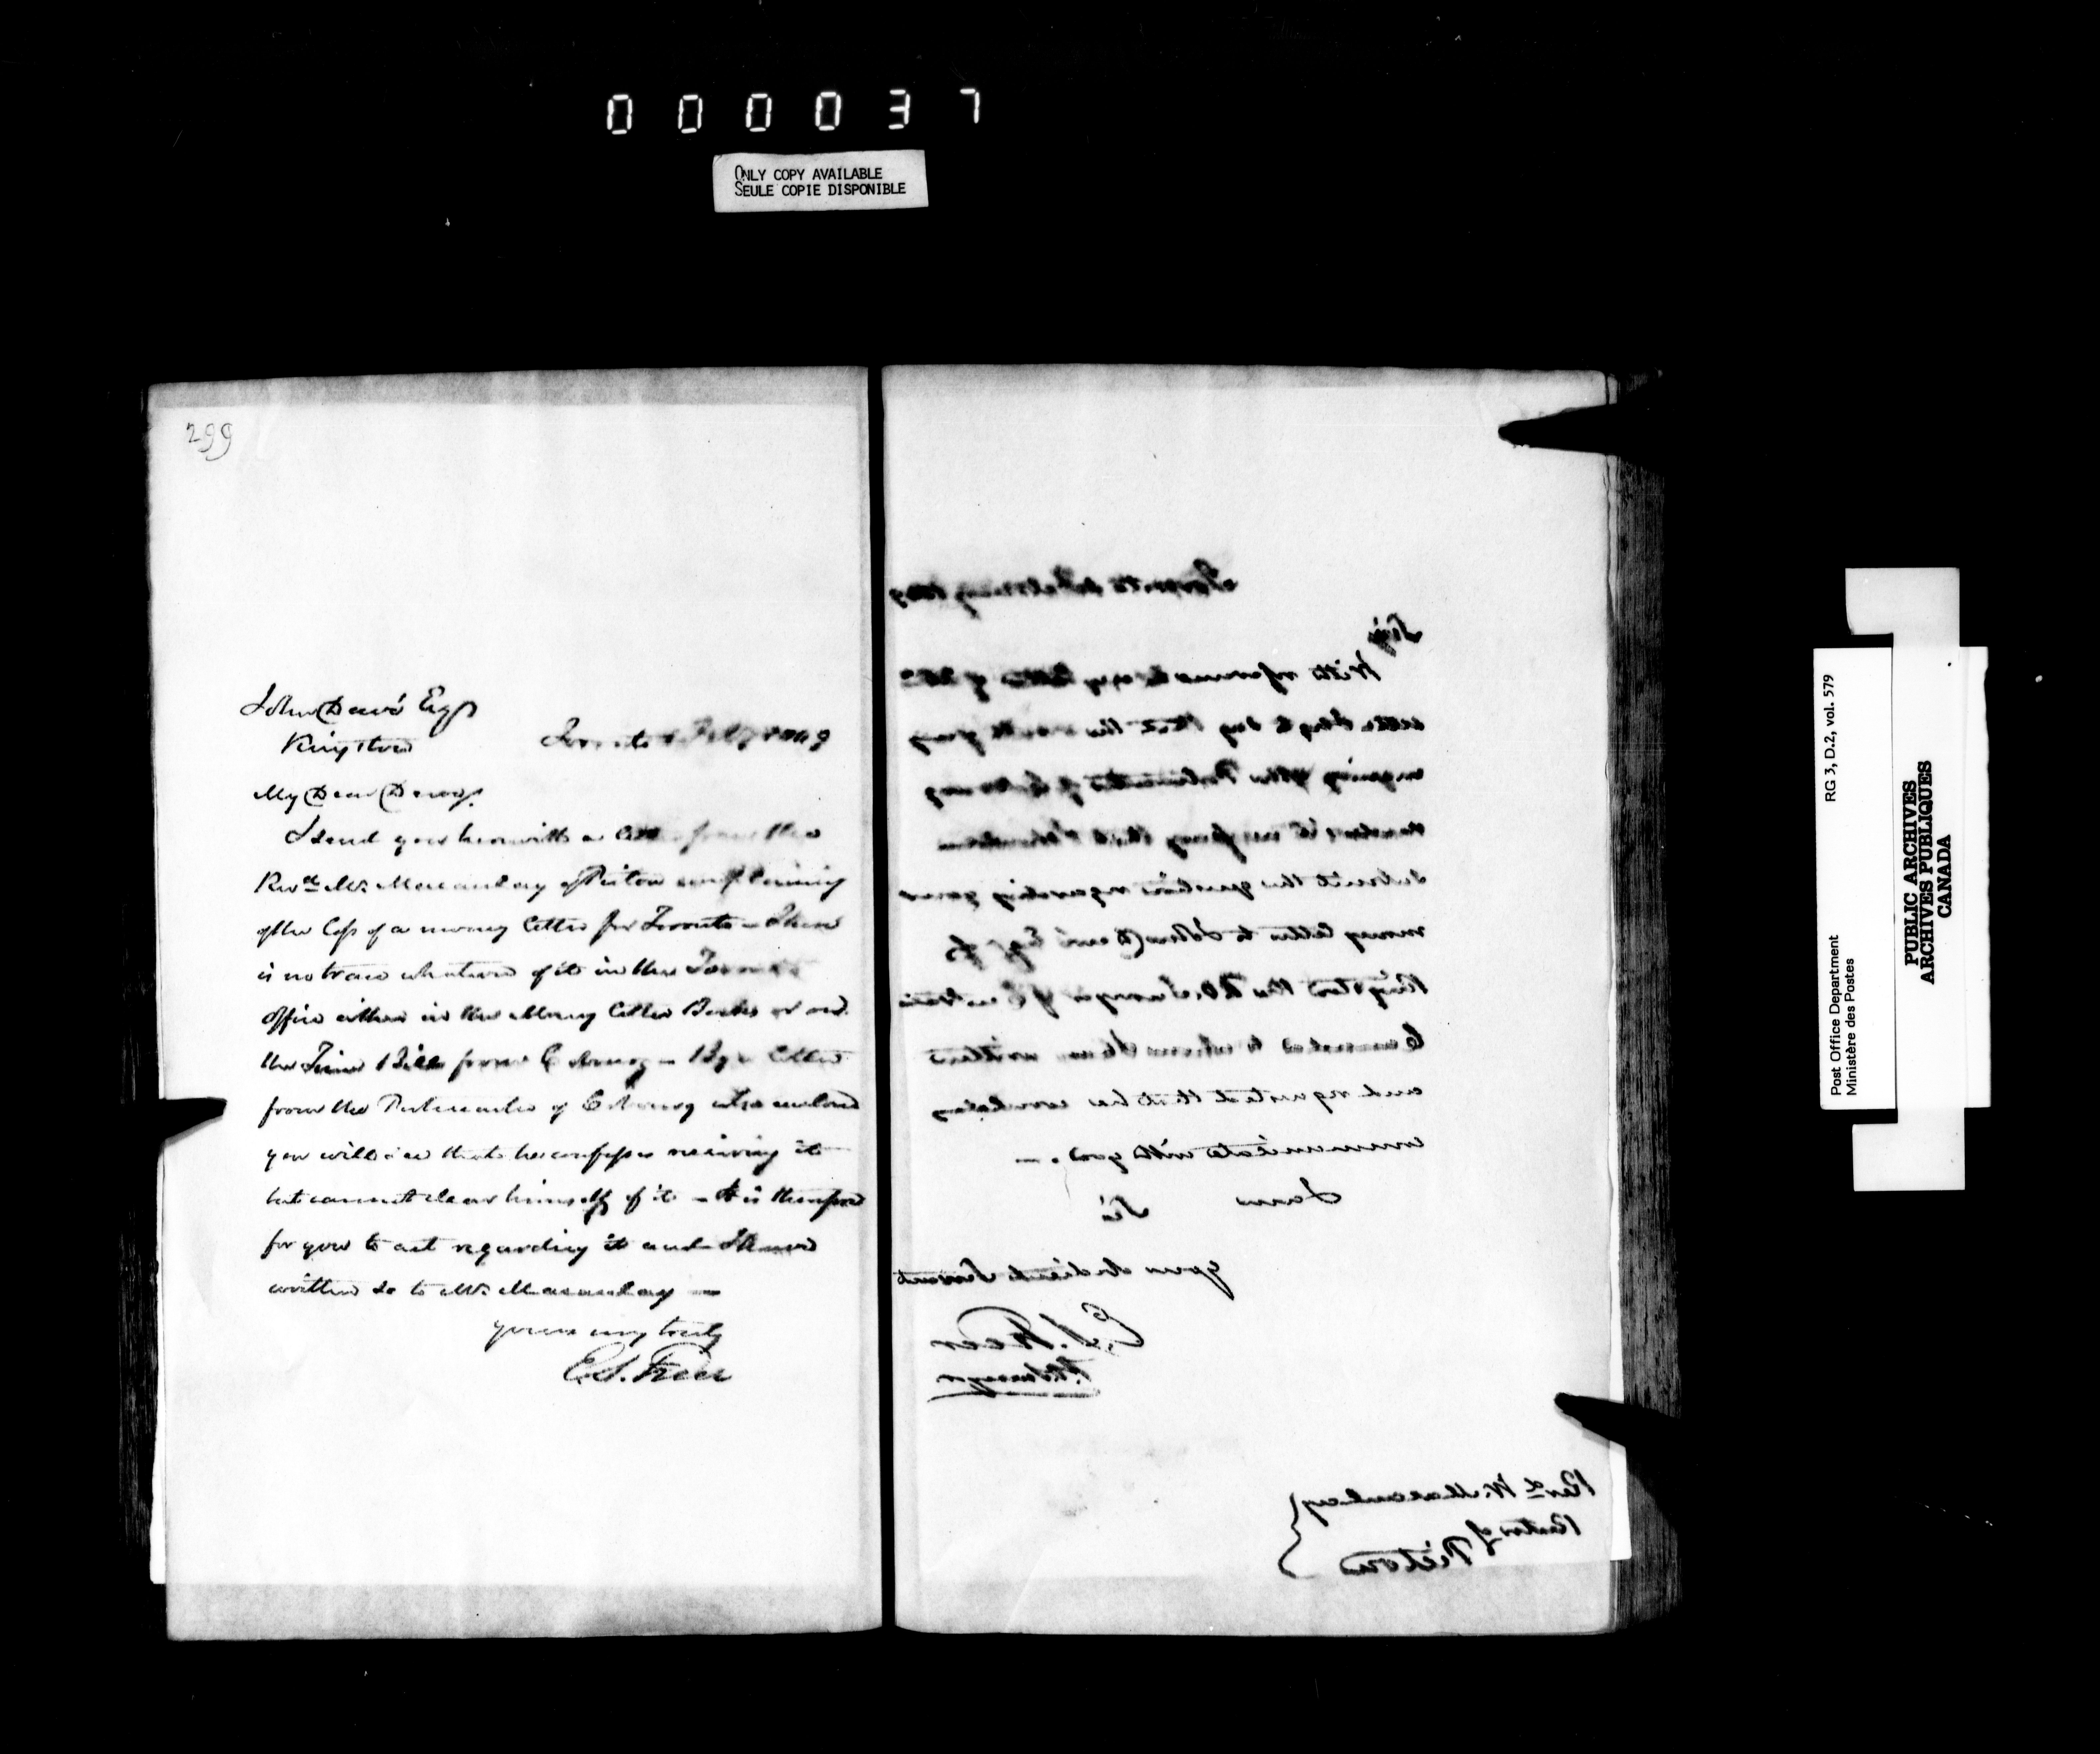 000037
ONLY COPY AVAILABLE
SEULE COPIE DISPONIBLE
299
John Dewé Esqr
Kingston
Toronto Feby 1849
My Dear Dewé.
I send you herewith a letter from the
Revd. Mr. Macaulay of Picton complaining
of the loss of a money letter for Toronto – There
is no trace whatever of it in the Toronto
Office either in the Money Letter Books or on
the Time Bills from Cobourg – By a letter
from the Postmaster of Cobourg also enclosed
you will see that he confesses receiving it
but cannot clear himself of it – It is therefore
for you to act regarding it and I have
written so to Mr. Macaulay –
yours very truly
E.S. Freer
Toronto February 1849
Sir,
With reference to my letter of the
to say that the
enquiry of the Postmaster of Cobourg
renders it necessary that I should
submit the question regarding your
money letter to John Dewé Esqr of
Kingston the P.O. Surveyor of Central
Canada to whom I have written
and requested that he will
communicate with you. –
I am
Sir
your obedient Servant
E.S. Freer
P.O. Surveyor
Revd. W. Macaulay
Rector of
Picton
Post Office Department
Ministère des Postes
RG 3, D.2, vol. 579
PUBLIC ARCHIVES
ARCHIVES PUBLIQUES
CANADA